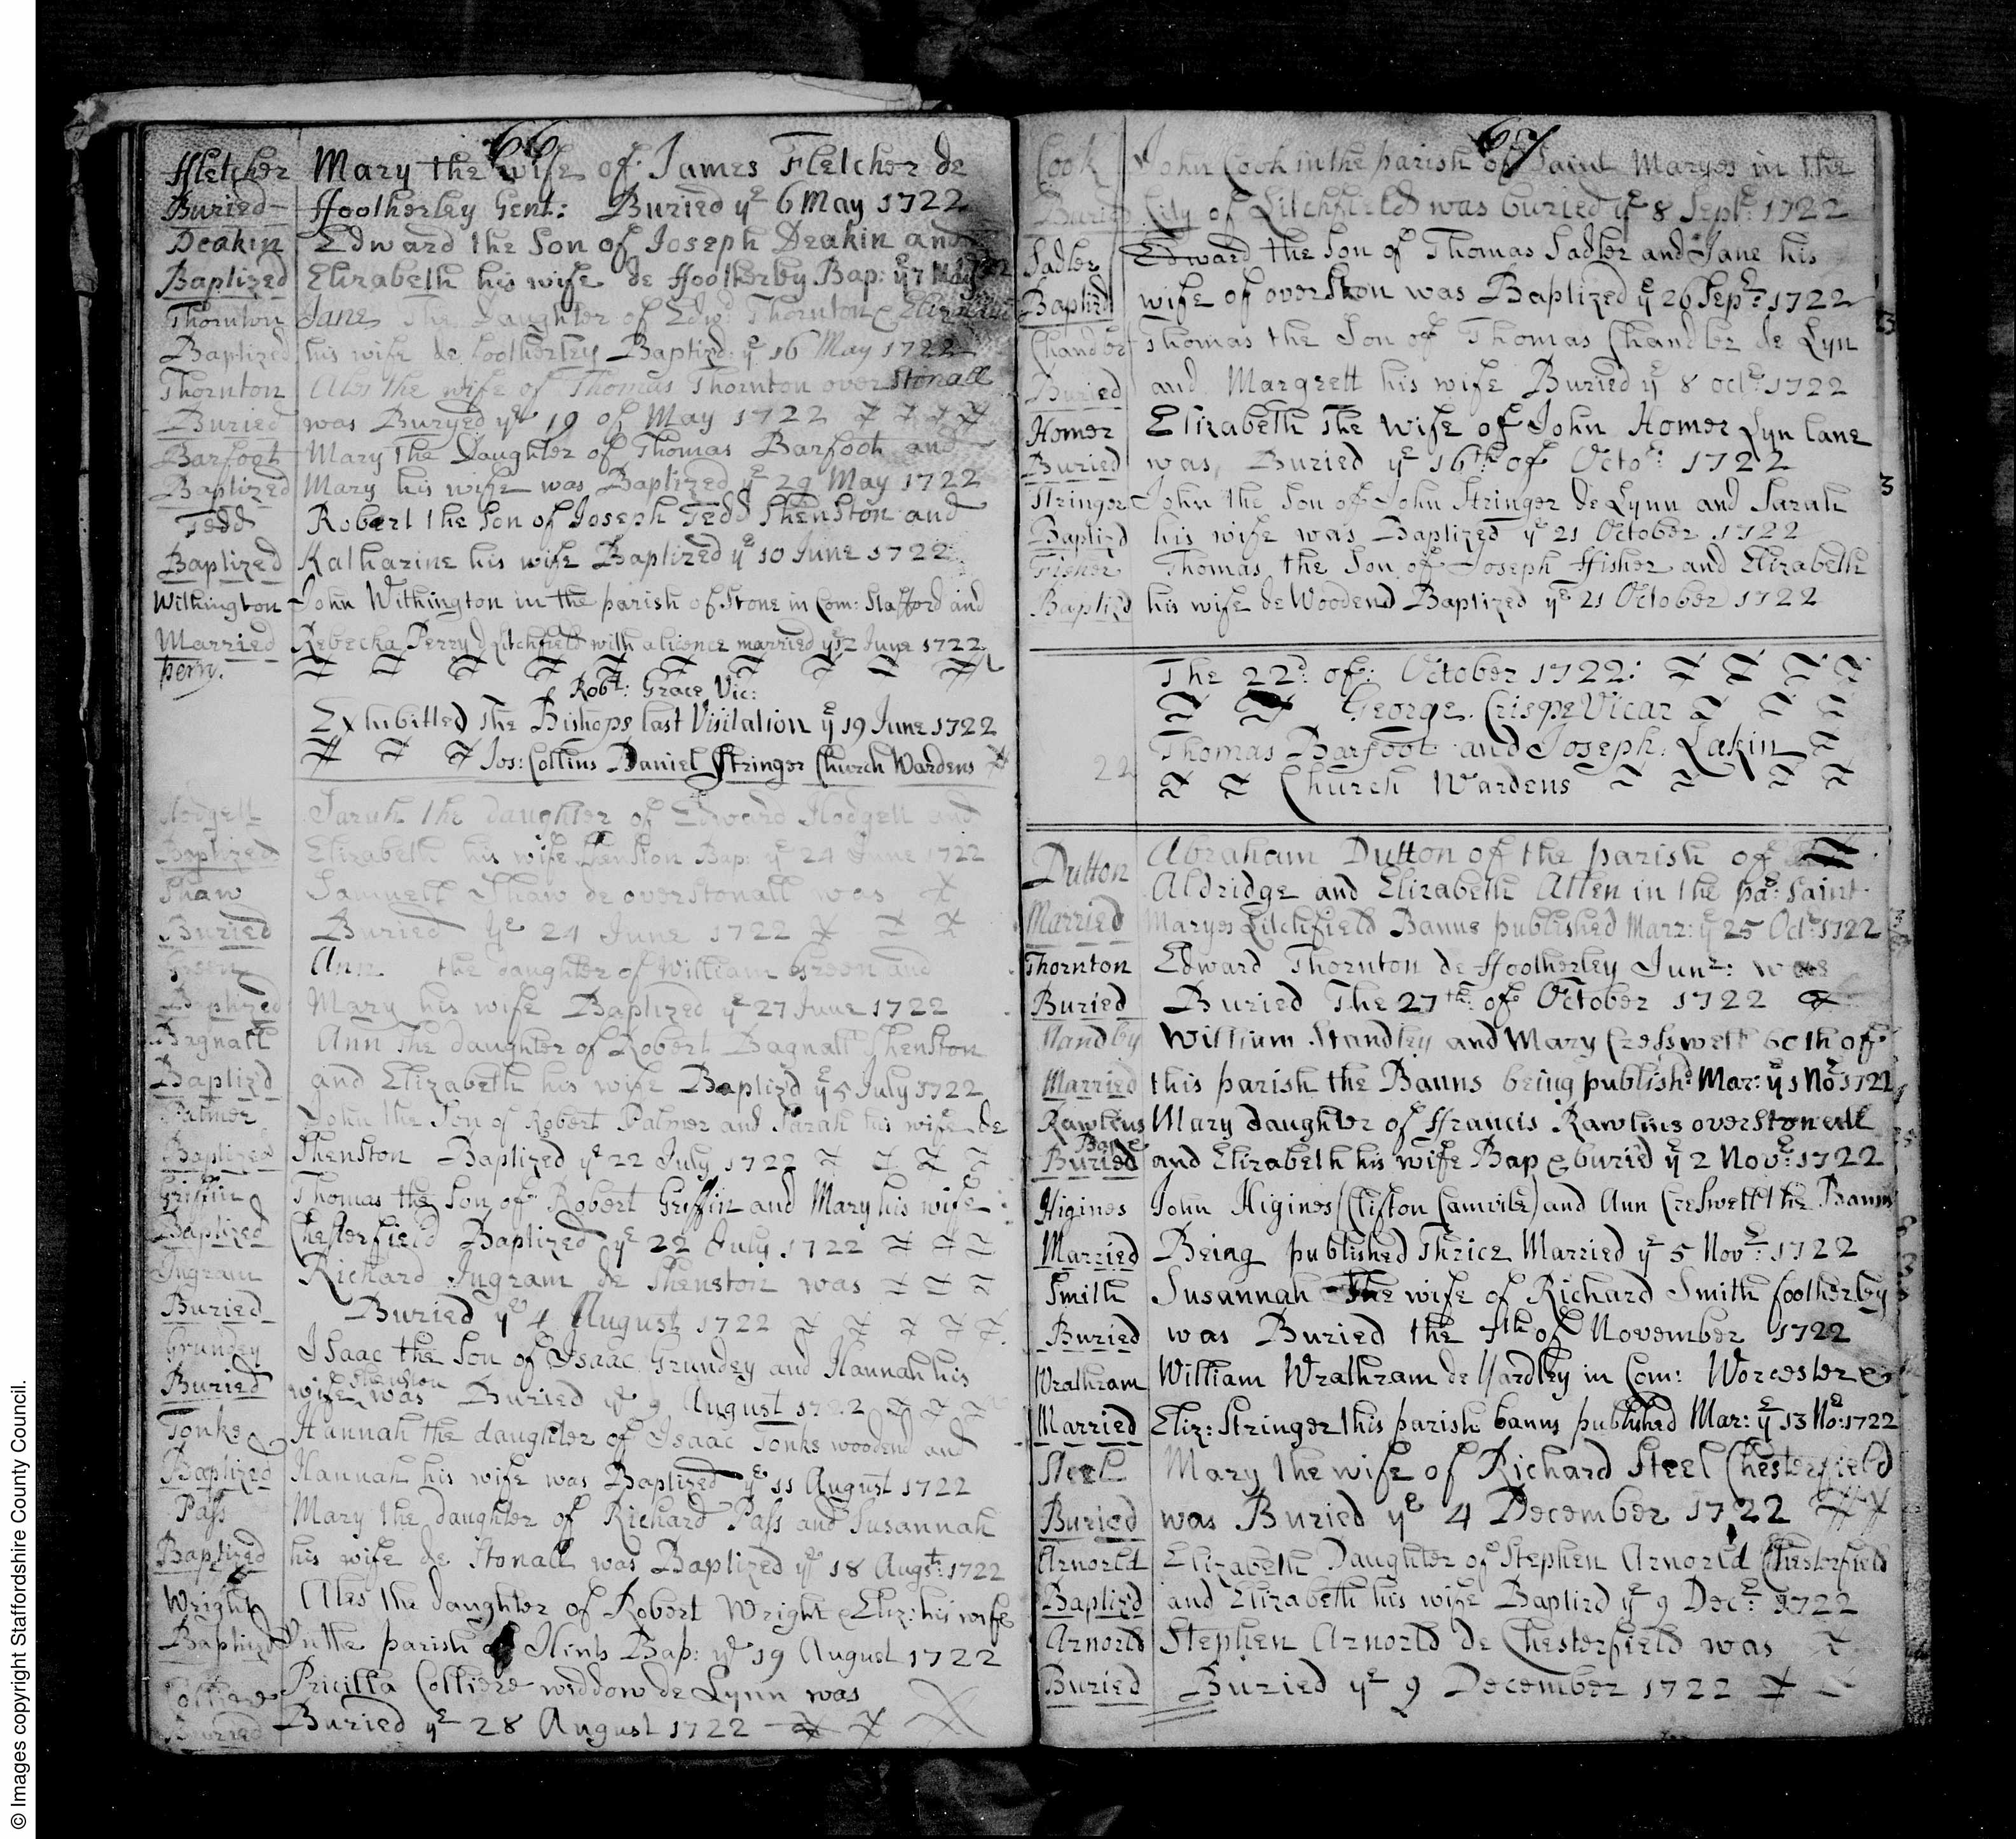 66
Ffletcher Mary the wife of James Fletcher de
Buried Ffootherley Gent: Buried ye 6 May 1722
Deakin Edward the Son of Joseph Deakin and
Baptized Elizabeth his wife de Ffootherby Bap: ye 7 May
Thornton Jane The Daughter of Edwd Thornton &
Baptized his wife de footherley Baptizd: ye 16 May 1722
Thornton Ales the wife of Thomas Thornton over Stonall
Buried was Buryed ye 19 of May 1722
Barfoot Mary The Daughter of Thomas Barfoot and
Baptized Mary his wife was Baptized ye 29 May 1722
Tedd Robert the Son of Joseph Tedd Shenston and
Baptized Katharine his wife Baptized ye 10 June 1722
Withington John Withington in the parish of Stone in Com: Stafford and
Married Rebecka Perry d Litchfield with a licence married ye 12 June 1722
perry.
Robt: Grace Vic:
Exhibitted The Bishops last Visitation ye 19 June 1722
Jos: Collins Daniel Stringer Church Wardens
Hodgett Sarah the daughter of Edward Hodgett and
Baptized Elizabeth his wife Shenston Bap: ye 24 June 1722
Shaw Samuell Shaw de over Stonall was
Buried Buried ye 24 June 1722
Green Ann the daughter of William Green and
Baptized Mary his wife Baptized ye 27 June 1722
Bagnall Ann The daughter of Robert Bagnall Shenston
Baptiz'd and Elizabeth his wife Baptiz'd ye 5 July 1722
Palmer John the Son of Robert Palmer and Sarah his wife de
Baptized Shenston Baptized ye 22 July 1722
Griffin Thomas the Son of Robert Griffin and Mary his wife
Baptized Chesterfield Baptized ye 22 July 1722
Ingram Richard Ingram de Shenston was
Buried Buried ye 4 August 1722
Grundey Isaac the Son of Isaac Grundey and Hannah his
Buried wife Shenston was Buried ye 9 August 1722
Tonks Hannah the daughter of Isaac Tonks woodend and
Baptized Hannah his wife was Baptized ye 11 August 1722
Pass Mary the daughter of Richard Pass and Susannah
Baptized his wife de Stonall was Baptized ye 18 Augst: 1722
Wright Ales the daughter of Robert Wright & Eliz: his wife
Baptizd In the parish of Hints Bap: ye 19 August 1722
Colliere Pricilla Colliere widdow de Lynn was
Buried Buried ye 28 August 1722
67
Cook John Cook in the parish of Saint Maryes in the
Buried City of Litchfield was buried ye 8 Sept: 1722
Sadler Edward the Son of Thomas Sadler and Jane his
Baptizd wife of over Ston was Baptized ye 26 Sept: 1722
Chandler Thomas the Son of Thomas Chandler de Lyn
Buried and Margrett his wife Buried ye 8 Oct: 1722
Homer Elizabeth The wife of John Homer Lyn lane
Buried was Buried ye 16th of Octor: 1722
Stringer John the Son of John Stringer de Lynn and Sarah
Baptizd his wife was Baptized ye 21 October 1722
Fisher Thomas the Son of Joseph Ffisher and Elizabeth
Baptizd his wife de Woodend Baptized ye 21 October 1722
The 22d of October 1722:
George Crispe Vicar
Thomas Barfoot and Joseph Lakin
22 Church Wardens
Dutton Abraham Dutton of the parish of
Aldridge and Elizabeth Allen in the pa: Saint
Married Maryes Litchfield Banns published Marr: ye 25 Oct: 1722
Thornton Edward Thornton de Ffootherley Junr: was
Buried Buried The 27th of October 1722
Standley William Standley and Mary Cresswell both of
Married this parish the Banns being publishd Mar: ye 1 Nov 1722
Rawlins Mary daughter of Ffrancis Rawlins over Stonall
Bap &
Buried and Elizabeth his wife Bap & buried ye 2 Nov: 1722
Higines John Higines (Clifton Camvile) and Ann Creswell the Banns
Married Being published Thrice Married ye 5 Nov: 1722
Smith Susannah The wife of Richard Smith footherley
Buried was Buried the 7th of November 1722
Wrathram William Wrathram de Yardley in Com: Worcester &
Married Eliz: Stringer this parish banns published Mar: ye 13 No: 1722
Steel Mary the wife of Richard Steel Chesterfield
Buried was Buried ye 4 December 1722
Arnorld Elizabeth Daughter of Stephen Arnorld Chesterfield
Baptiz'd and Elizabeth his wife Baptizd ye 9 Dec: 1722
Arnorld Stephen Arnorld de Chesterfield was
Buried Buried ye 9 December 1722
© Images copyright Staffordshire County Council.